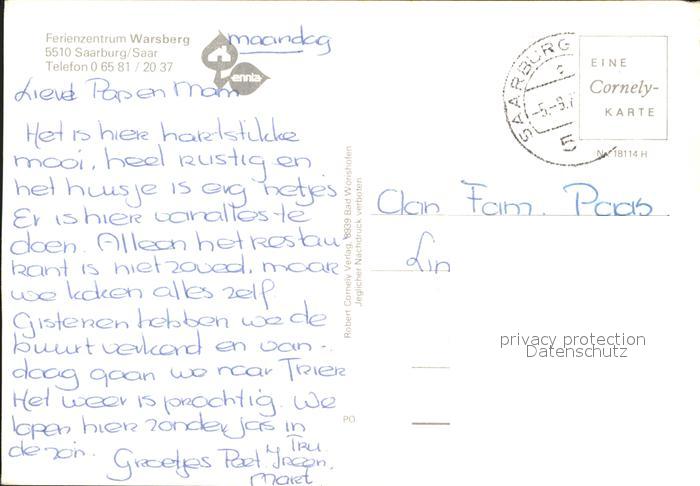 Ferienzentrum Warsberg
5510 Saarburg/Saar
Telefon 0 65 81 / 20 37
ennia
maandag
Lieve Pap en Mam
Het is hier hartstikke
mooi, heel rustig en
het huisje is erg netjes
Er is hier van alles te
doen. Alleen het restau
rant is niet zoveel, maar
we koken alles zelf
Gisteren hebben we de
buurt verkend en van-
daag gaan we naar Trier
Het weer is prachtig. We
lopen hier zonder jas in
de zon. Groetjes Peet, Tru
Mart
Robert Cornely Verlag, 8939 Bad Wörishofen
Jeglicher Nachdruck verboten
PO
SAARBURG
5
EINE
Cornely-
KARTE
Nr. 18114 H
Aan Fam. Paas
Lin
privacy protection
Datenschutz